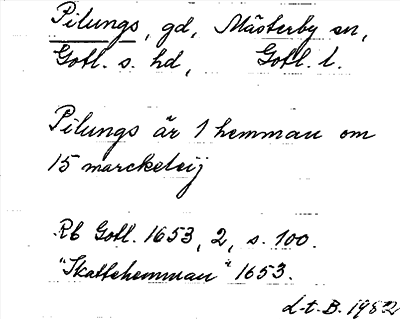 Pilungs, gd, Mästerby sn,
Gotl. s. hd, Gotl. l.
Pilungs är 1 hemman om
15 marckeleij
Rb Gotl. 1653, 2, s. 100.
"Skattehemman" 1653.
L-t. B. 1982